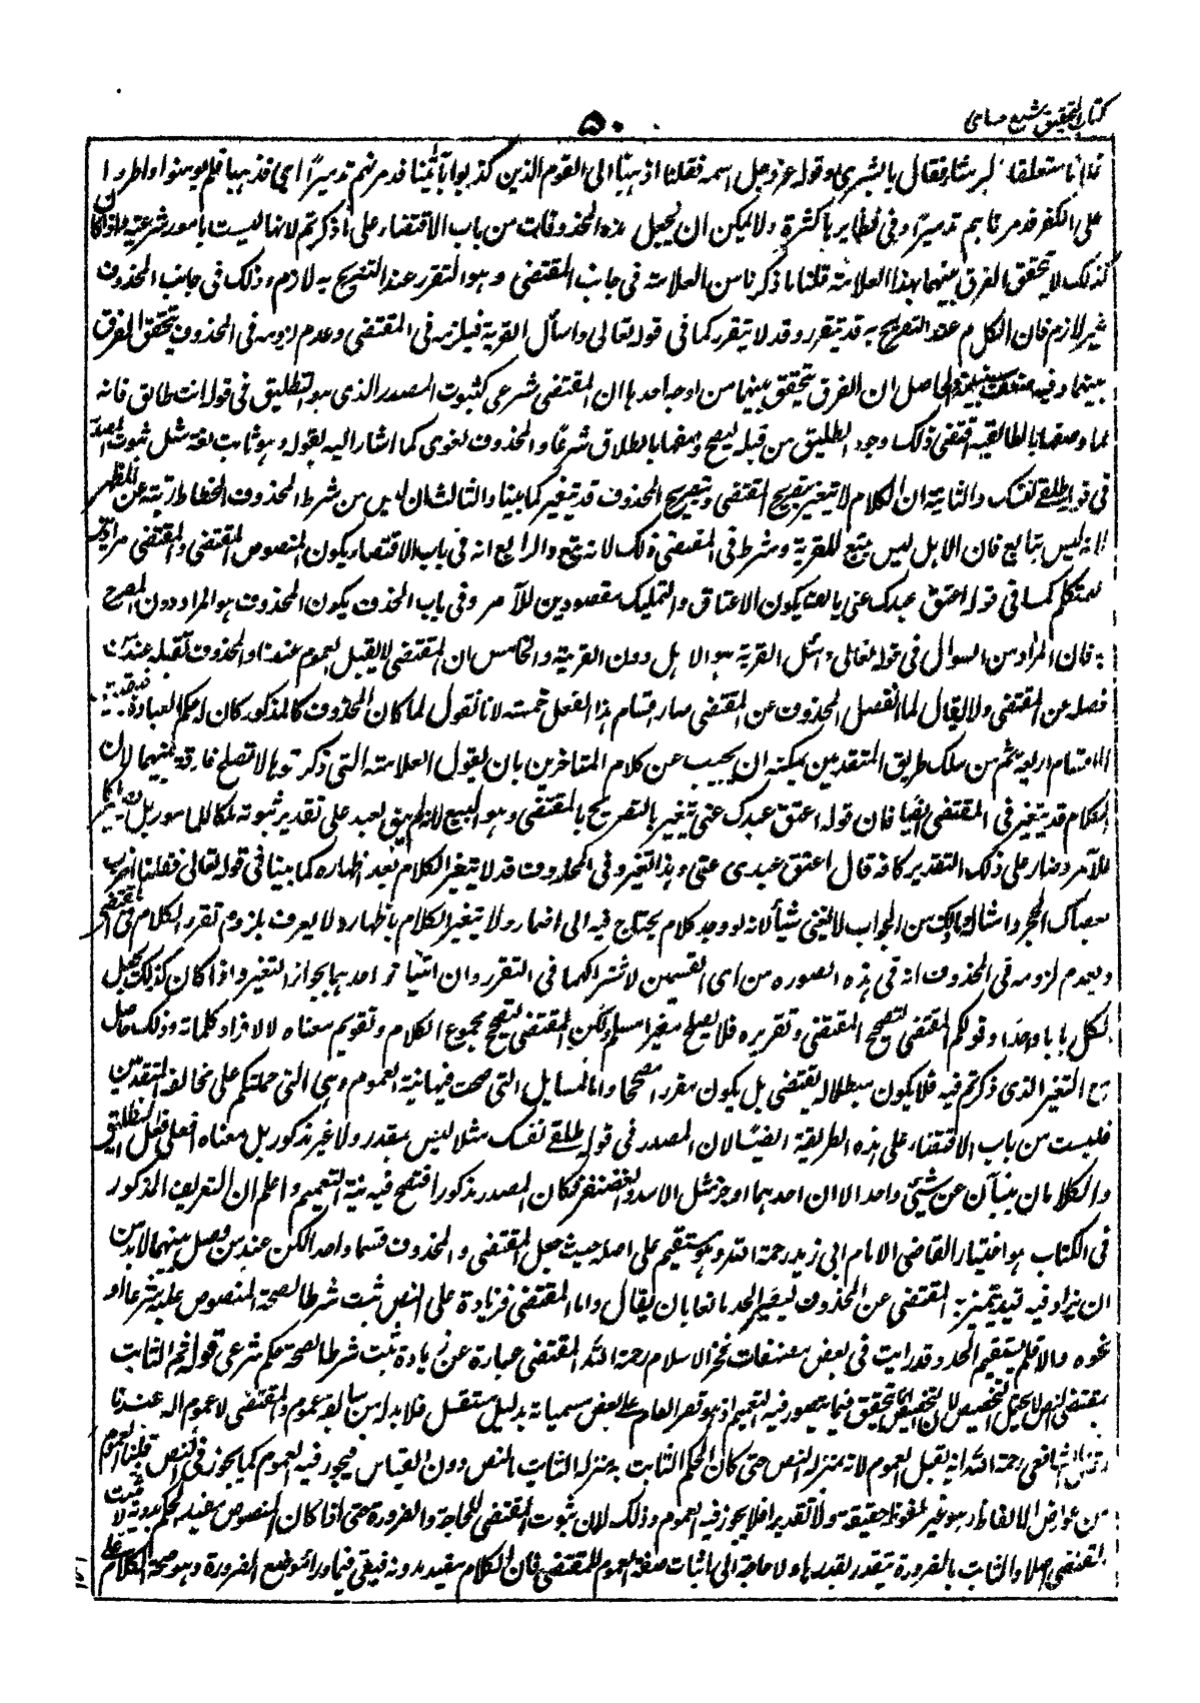 كتاب التحقيق شرح حسامى
۵۰
متعلقا فقال يا بشرى وقوله عز وجل اسمه فقلنا اذهبا الى القوم الذين كذبوا بآياتنا فدمرناهم تدميرا اى فذهبا فلم يؤمنوا واصروا
على الكفر فدمرناهم تدميرا وفى نظايرها كثرة ولا يمكن ان يجعل هذه المحذوفات من باب الاقتضاء على ما ذكرتم لانها ليست بامور شرعية واذا كان
كذلك لا يتحقق الفرق بينهما بهذا العلامة قلنا ما ذكرنا من العلامة فى جانب المقتضى وهو التقرر عند التصريح به لازم وذلك فى جانب المحذوف
غير لازم فان الكلام عند التصريح به قد يتقرر وقد لا يتقرر كما فى قوله تعالى واسأل القرية فيلزمه فى المقتضى وعدم لزومه فى المحذوف يتحقق الفرق
بينهما وفيه الحاصل ان الفرق يتحقق بينهما من اوجه احدها ان المقتضى شرعى كثبوت المصدر الذى هو التطليق فى قوله انت طالق فانه
لما وصفها بالطالقية اقتضى ذلك وجود التطليق من قبله ليصح وصفها بالطلاق شرعا والمحذوف لغوى كما اشار اليه بقوله وهو ثابت لغة مثل ثبوت المصدر
فى قوله طلقى نفسك والثانية ان الكلام لا يتغير بتصريح المقتضى وبتصريح المحذوف قد يتغير كما بينا والثالث ان ليس من شرط المحذوف انحطاط رتبته عن المظهر
لانه ليس بتابع فان الاهل ليس بتبع للقرية وشرط فى المقتضى ذلك لانه تبع والرابع انه فى باب الاقتضاء يكون المنصوص المقتضى والمقتضى مرادين
للمتكلم كما فى قوله اعتق عبدك عنى بالف يكون الاعتاق والتمليك مقصودين للآمر وفى باب الحذف يكون المحذوف هو المراد دون المصرح
به فان المراد من السوال فى قوله تعالى واسئل القرية هو الاهل دون القرية والخامس ان المقتضى لا يقبل العموم عندنا والمحذوف يقبله عند من
فصله عن المقتضى ولا يقال لما انفصل المحذوف عن المقتضى صار اقسام هذا الفصل خمسة لانا نقول لما كان المحذوف كالمذكور كان له حكم العبارة فبقيت
الاقسام اربعة ثم من سلك طريق المتقدمين يمكنه ان يجيب عن كلام المتاخرين بان يقول العلامة التى ذكرتموها لا تصلح فارقة بينهما لان
الكلام قد يتغير فى المقتضى ايضا فان قوله اعتق عبدك عنى يتغير بالتصريح بالمقتضى وهو البيع لانه لم يبق العبد على تقدير ثبوته ملكا للمامور بل يصير ملكا
للآمر وصار على ذلك التقدير كانه قال اعتق عبدى عنى وهذا التغير وفى المحذوف قد لا يتغير الكلام بعد اظهاره كما بينا فى قوله تعالى فقلنا اضرب
بعصاك الحجر وامثاله من الجواب لا يغنى شيأ لانه لو وجد كلام يحتاج فيه الى اضمار ولا يتغير الكلام باظهاره لا يعرف بلزوم تقرر الكلام فى المقتضى
وبعدم لزومه فى المحذوف انه فى هذه الصورة من اى القسمين لاشتراكهما فى التقرر وان امتاز احدهما بجواز التغير واذا كان كذلك يجعل
الكل بابا واحدا وقولكم المقتضى لتصحيح المقتضى وتقريره فلا يصلح مغيرا مسلم ولكن المقتضى لتصحيح مجموع الكلام وتقويم معناه لا لافراد كلماته وذلك حاصل
مع التغير الذى ذكرتم فيه فلا يكون مبطلا للمقتضى بل يكون مقررا مصححا واما المسايل التى صحت فيها نية العموم وهى التى حملتكم على مخالفة المتقدمين
فليست من باب الاقتضاء على هذه الطريقة ايضا لان المصدر فى قوله طلقى نفسك مثلا ليس بمقدر ولا غير مذكور بل معناه افعلى فعل التطليق
والكلامان ينبآن عن شيئ واحد الا ان احدهما اوجز مثل الاسد والغضنفر فكان المصدر مذكورا فتصح فيه نية التعميم واعلم ان التعريف المذكور
فى الكتاب هو اختيار القاضى الامام ابى زيد رحمة الله وهو مستقيم على اصله حيث جعل المقتضى والمحذوف قسما واحدا لكن عند من فصل بينهما لا بد من
ان يزاد فيه قيد يتميز به المقتضى عن المحذوف ليصير الحد مانعا بان يقال واما المقتضى فزيادة على النص ثبت شرطا لصحة المنصوص عليه شرعا او
نحوه والا فلم يستقيم الحد وقد رايت فى بعض مصنفات فخر الاسلام رحمة الله المقتضى عبارة عن زيادة ثبت شرطا لصحة حكم شرعى قوله ثم الثابت
بمقتضى النص لا يحتمل التخصيص لان التخصيص انما يتحقق فيما يتصور فيه التعميم اذ هو قصر العام على بعض مسمياته بدليل مستقل فلا بد له من سابقة عموم والمقتضى لا عموم له عندنا
وقال الشافعى رحمة الله انه يقبل العموم لانه بمنزلة النص حتى كان الحكم الثابت به بمنزلة الثابت بالنص دون القياس فيجوز فيه العموم كما يجوز فى النص قلنا العموم
من عوارض الالفاظ وهو غير ملفوظ حقيقة ولا تقديرا فلا يجوز فيه العموم وذلك لان ثبوت المقتضى للحاجة والضرورة حتى اذا كان المنصوص مفيدا للحكم بدونه لا يثبت
المقتضى اصلا والثابت بالضرورة يتقدر بقدرها ولا حاجة الى اثبات صفة العموم للمقتضى فان الكلام مفيد بدونه فيبقى فيما وراء موضع الضرورة وهو صحة الكلام على